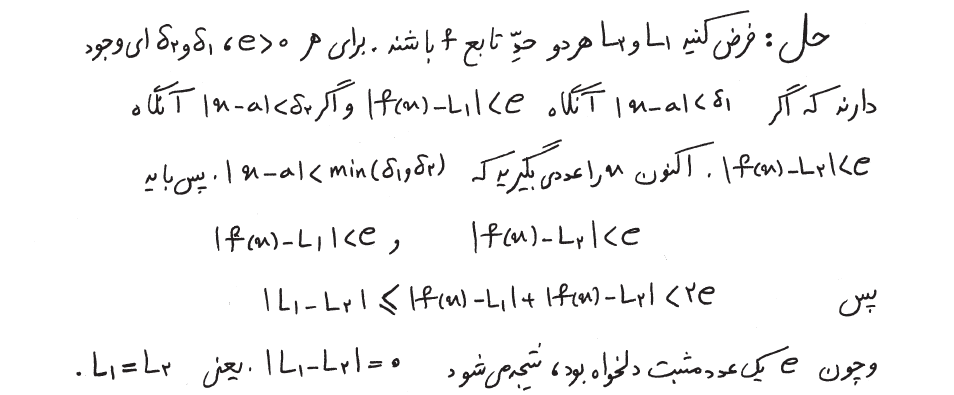 حل: فرض کنید L۱ و L۲ هر دو حدِّ تابع f باشند. برای هر e>۰، δ۱ و δ۲ ای وجود
دارند که اگر |x-a|<δ۱ آنگاه |f(x)-L۱|<e و اگر |x-a|<δ۲ آنگاه
|f(x)-L۲|<e. اکنون x را عددی بگیرید که |x-a|<min(δ۱ و δ۲). پس باید
|f(x)-L۱|<e , |f(x)-L۲|<e
پس |L۱-L۲| ⩽ |f(x)-L۱|+|f(x)-L۲| <۲e
و چون e یک عدد مثبت دلخواه بود، نتیجه می شود |L۱-L۲|=۰. یعنی L۱=L۲.